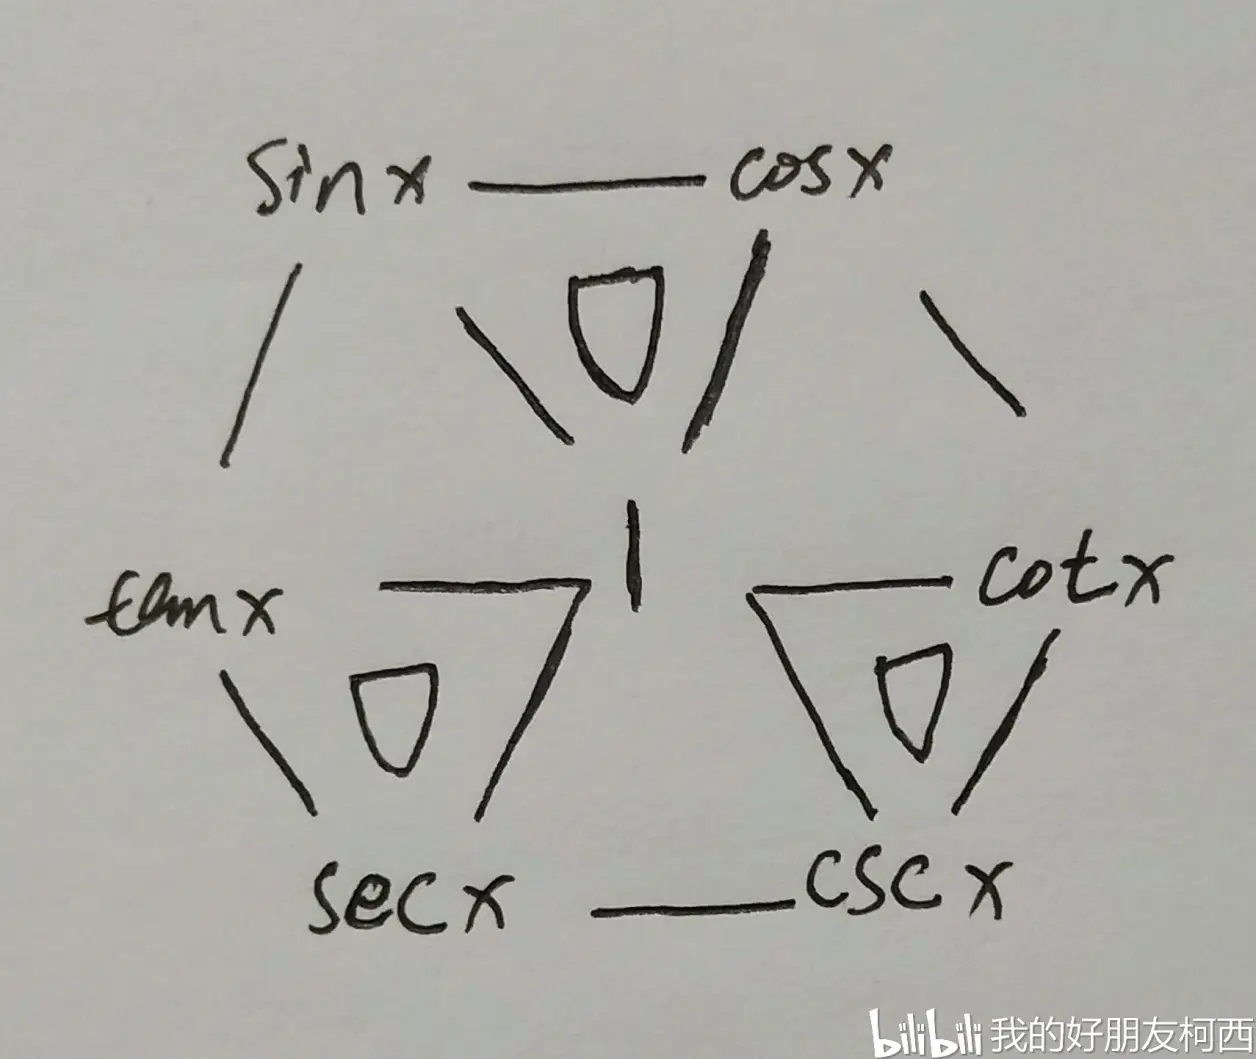 sin x cos x
1
tan x cot x
sec x csc x
bilibili 我的好朋友柯西